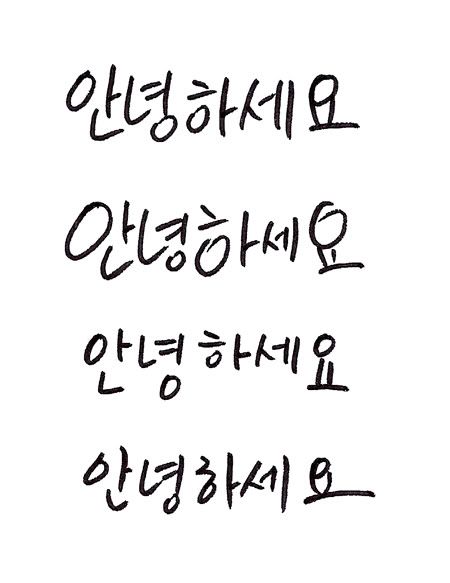 안녕하세요
안녕하세요
안녕하세요
안녕하세요